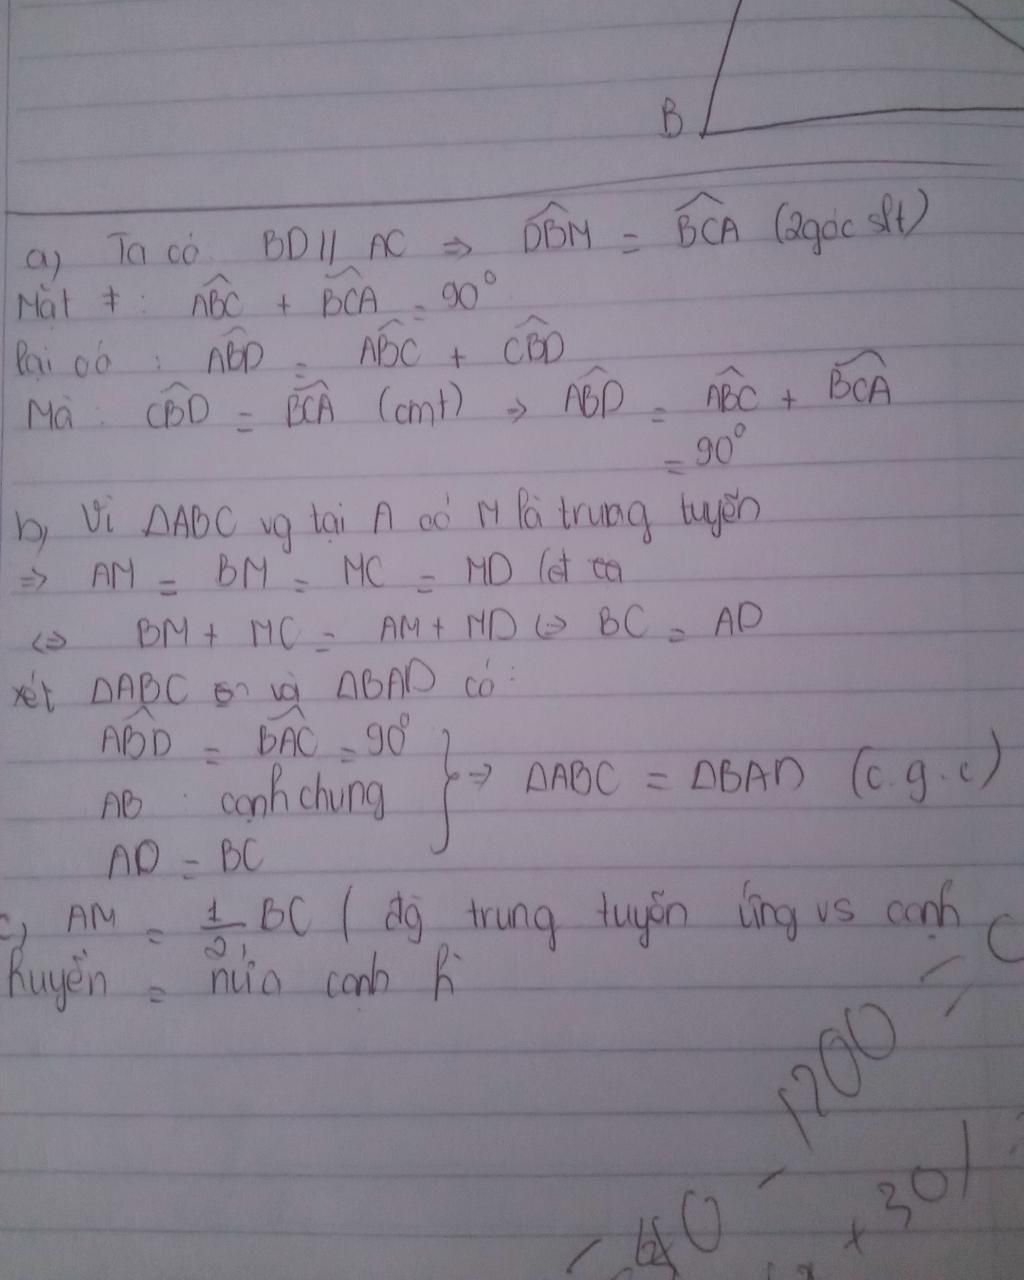 B
a) Ta có BD // AC => DBM = BCA (2 góc slt)
Mặt ≠ : ABC + BCA = 90°
lại có : ABD = ABC + CBD
Mà : CBD = BCA (cmt) => ABD = ABC + BCA
= 90°
b, Vì ΔABC vg tại A có M là trung tuyến
=> AM = BM = MC = MD
<=> BM + MC = AM + MD <=> BC = AD
xét ΔABC và ΔBAD có :
ABD = BAC = 90°
AB : cạnh chung
AD = BC
} => ΔABC = ΔBAD (c.g.c)
c, AM = 1/2 BC ( đg trung tuyến ứng vs cạnh
huyền = nửa cạnh h
- 1200 =
+ 30